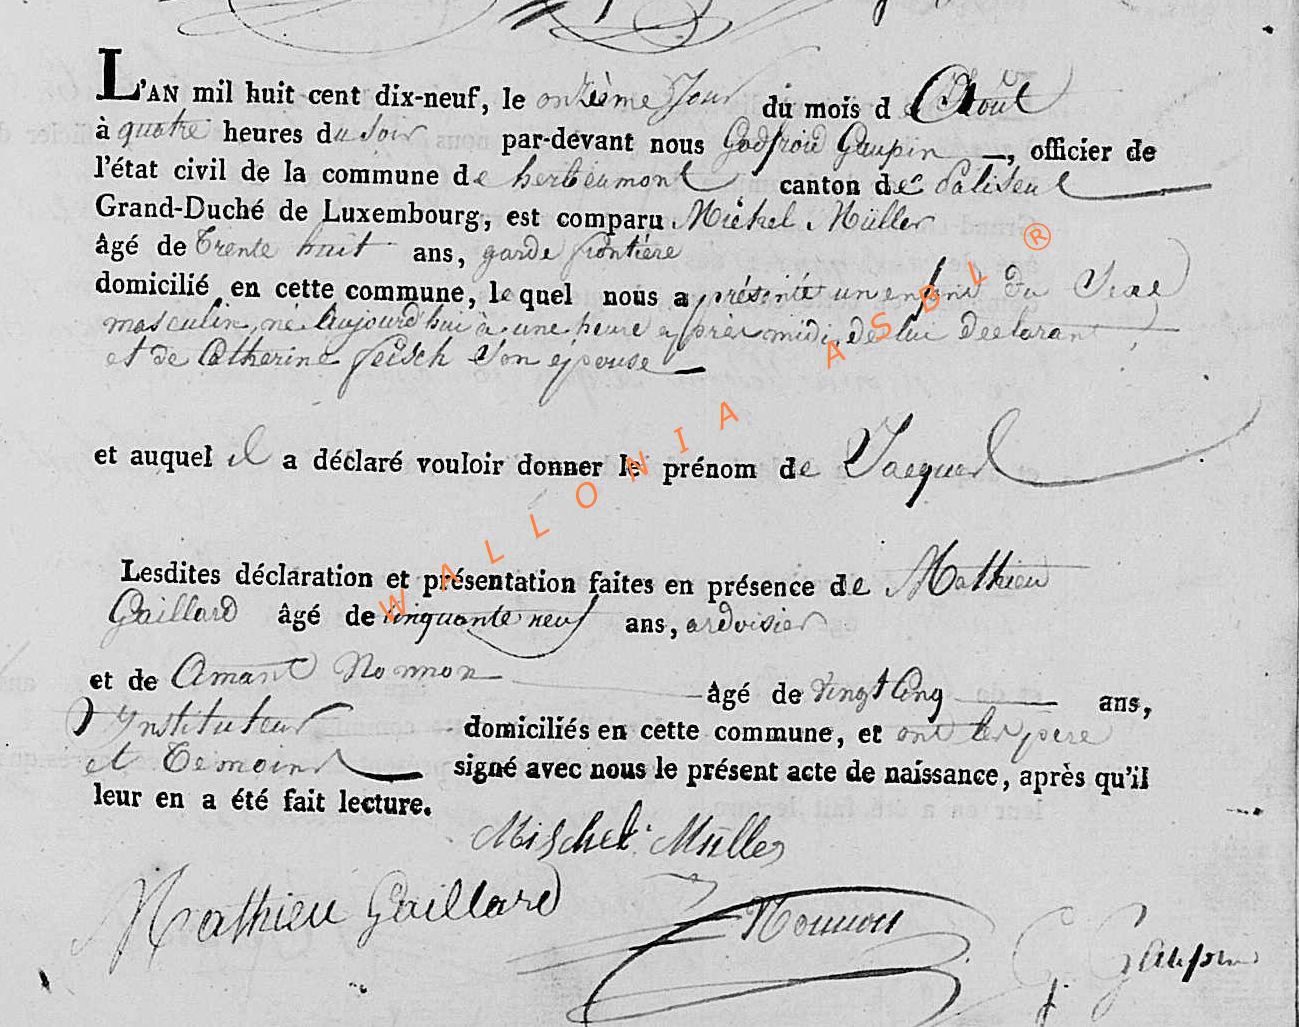 L'AN mil huit cent dix-neuf, le onzième Jour du mois d'Août
à quatre heures du Soir par-devant nous Godfroid Gaupin —, officier de
l'état civil de la commune de herbeumont canton de Paliseul
Grand-Duché de Luxembourg, est comparu Michel Müller
âgé de trente huit ans, garde frontière
domicilié en cette commune, lequel nous a présenté un enfant du Sexe
masculin, né Aujourd'hui à une heure après midi, de lui declarant
et de Catherine son epouse —
et auquel il a déclaré vouloir donner le prénom de Jacques
Lesdites déclaration et présentation faites en présence de Mathieu
Gaillard âgé de cinquante neuf ans, ardoisier
et de Amant Nonnon âgé de vingt Cinq ans,
Ynstituteur domiciliés en cette commune, et ont les père
et temoins signé avec nous le présent acte de naissance, après qu'il
leur en a été fait lecture.
Mischel Müller
Mathieu Gaillard Nonnon G Gaupin
WALLONIA ASBL ®